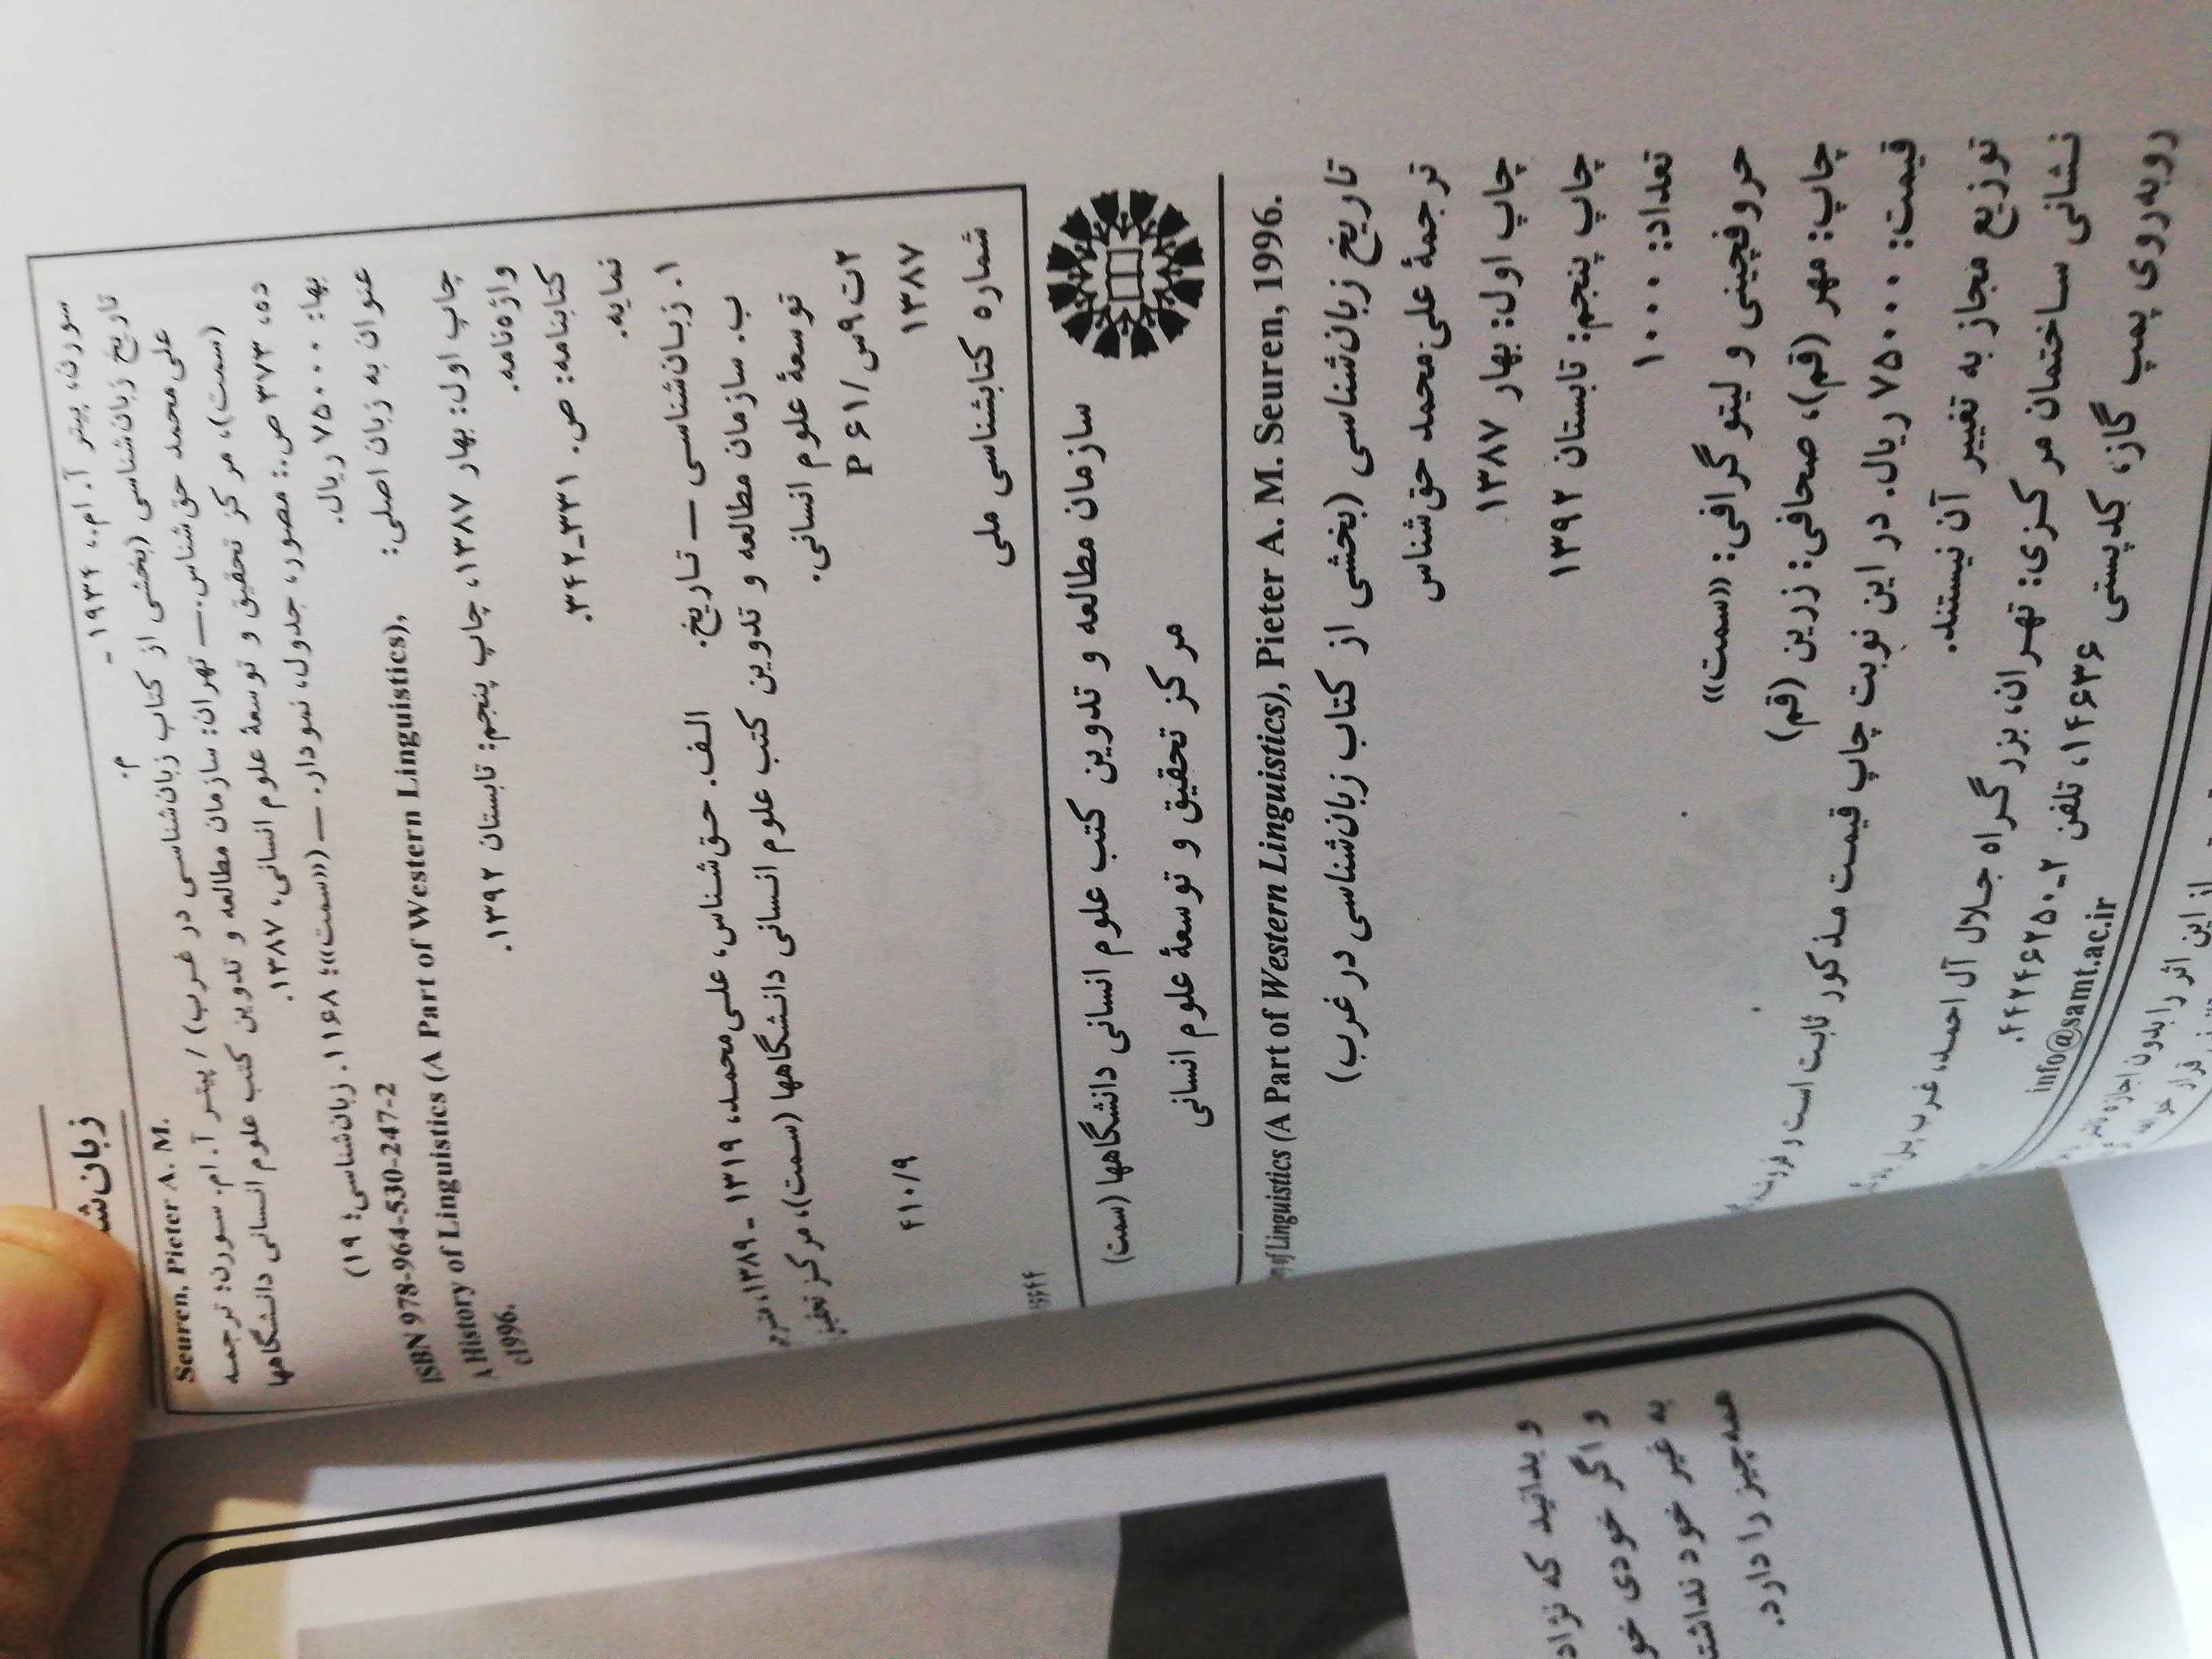 زبان‌شناسی
سورن، پیتر آ. ام.، ۱۹۳۴ - م.
Seuren, Pieter A. M.
تاریخ زبان‌شناسی (بخشی از کتاب زبان‌شناسی در غرب) / پیتر آ. ام. سورن؛ ترجمه
علی‌محمد حق‌شناس. — تهران: سازمان مطالعه و تدوین کتب علوم انسانی دانشگاهها
(سمت)، مرکز تحقیق و توسعهٔ علوم انسانی، ۱۳۸۷.
ده، ۳۷۳ ص.: مصور، جدول، نمودار. — («سمت»؛ ۱۱۶۸. زبان‌شناسی؛ ۱۹)
بها: ۷۵۰۰۰ ریال.
ISBN 978-964-530-247-2
عنوان به زبان اصلی:
A History of Linguistics (A Part of Western Linguistics),
c1996.
چاپ اول: بهار ۱۳۸۷، چاپ پنجم: تابستان ۱۳۹۲.
واژه‌نامه.
کتابنامه: ص. ۳۳۱-۳۴۲.
نمایه.
۱. زبان‌شناسی — تاریخ. الف. حق‌شناس، علی‌محمد، ۱۳۱۹ - ۱۳۸۹، مترجم.
ب. سازمان مطالعه و تدوین کتب علوم انسانی دانشگاهها (سمت)، مرکز تحقیق
توسعهٔ علوم انسانی.
۲ت۹س/P ۶۱
۱۳۸۷
۴۱۰/۹
شماره کتابشناسی ملی
سازمان مطالعه و تدوین کتب علوم انسانی دانشگاهها (سمت)
مرکز تحقیق و توسعهٔ علوم انسانی
of Linguistics (A Part of Western Linguistics), Pieter A. M. Seuren, 1996.
تاریخ زبان‌شناسی (بخشی از کتاب زبان‌شناسی در غرب)
ترجمهٔ علی‌محمد حق‌شناس
چاپ اول: بهار ۱۳۸۷
چاپ پنجم: تابستان ۱۳۹۲
تعداد: ۱۰۰۰
حروفچینی و لیتوگرافی: «سمت»
چاپ: مهر (قم)، صحافی: زرین (قم)
قیمت: ۷۵۰۰۰ ریال. در این نوبت چاپ قیمت مذکور ثابت است و فروشندگان
توزیع مجاز به تغییر آن نیستند.
نشانی ساختمان مرکزی: تهران، بزرگراه جلال آل احمد، غرب پل
روبه‌روی پمپ گاز، کدپستی ۱۴۶۳۶، تلفن ۲-۴۴۲۴۶۲۵۰.
info@samt.ac.ir
از این اثر را بدون اجازه ناشر
قرار خواهد
و بدانید که نژاد
و اگر خودی خو
به غیر خود نداشت
همه‌چیز را دارد.